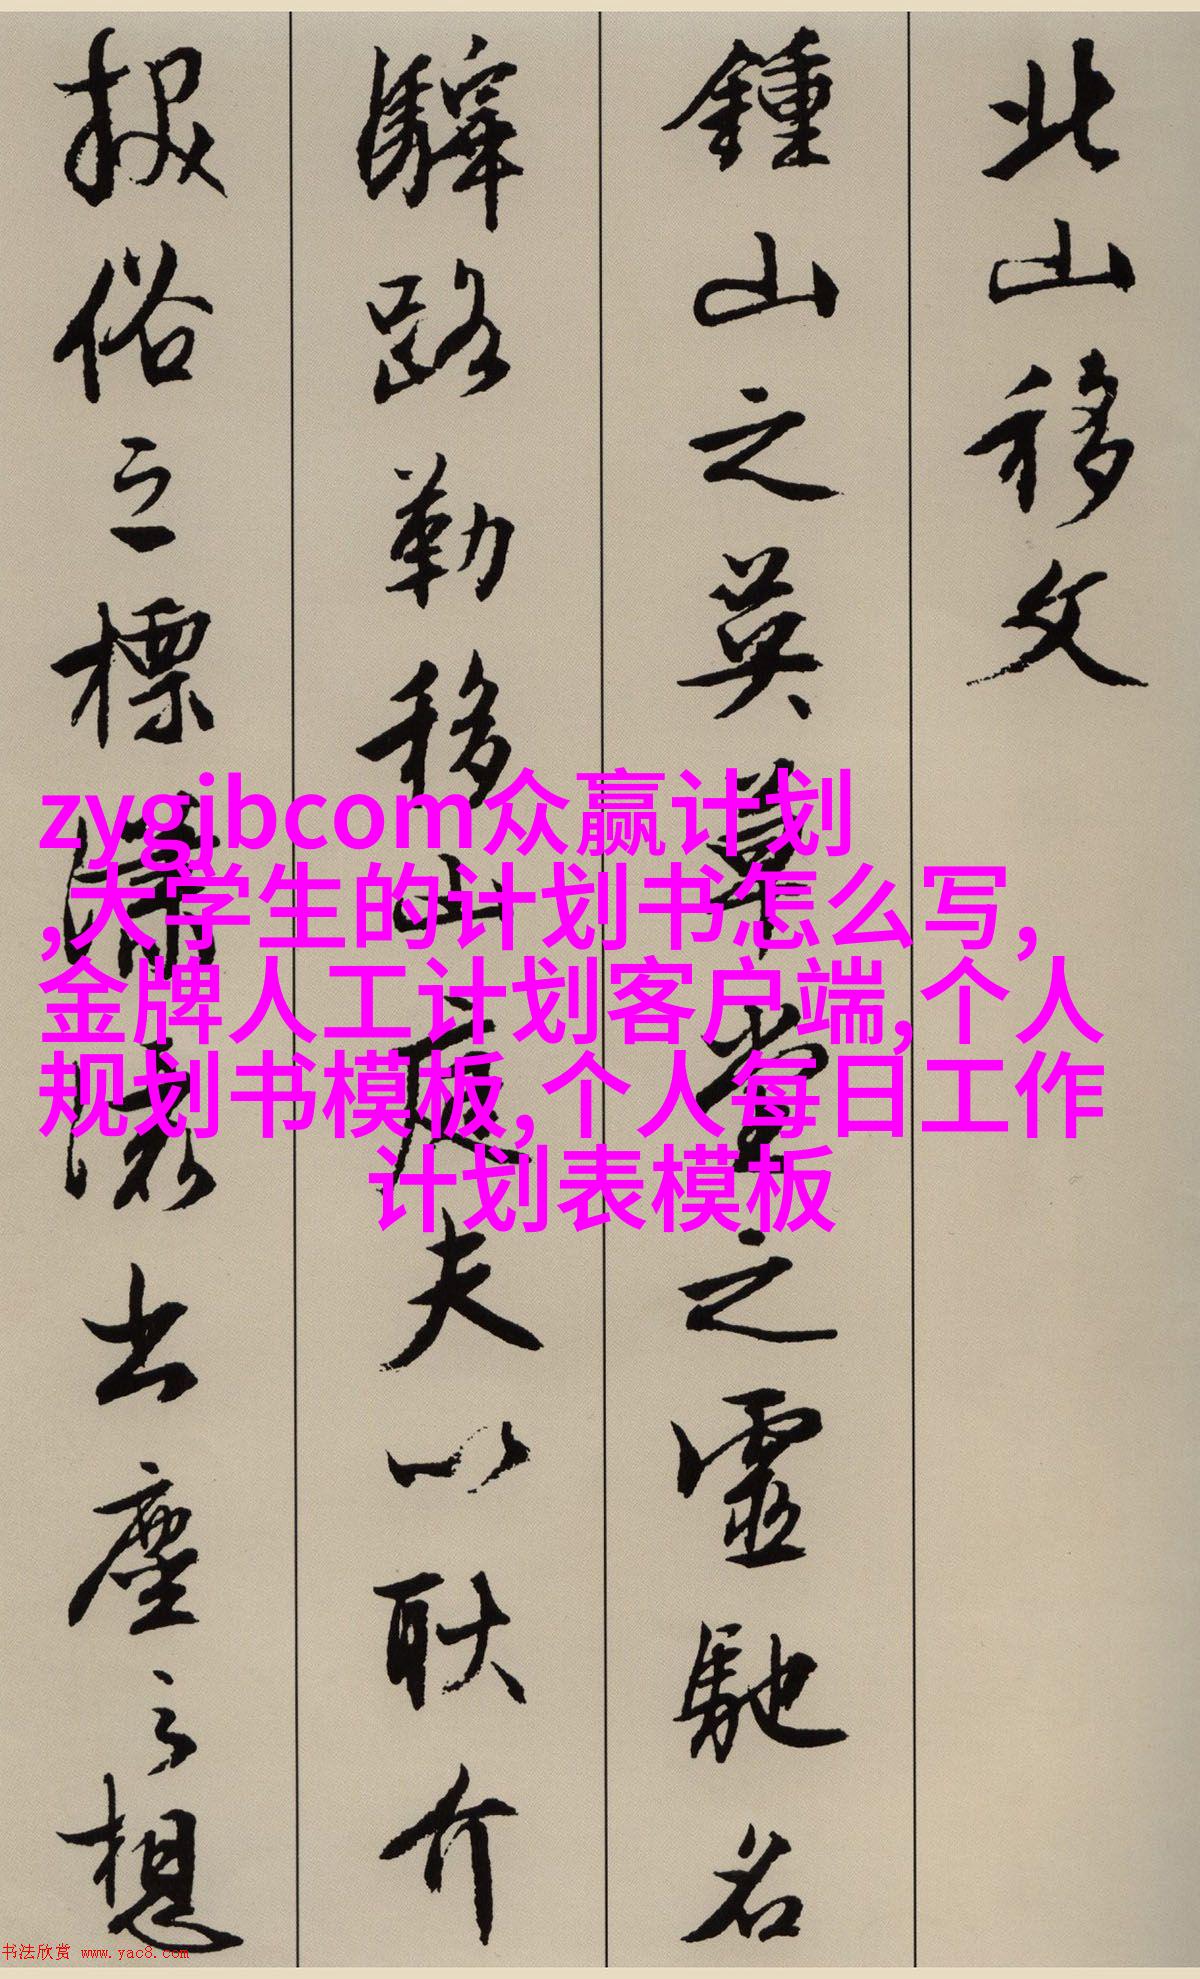 北山移文
鍾山之英草堂之靈馳名
驛路勒移山庭夫以耿介
拔俗之標瀟灑出塵之想
zygjbcom众赢计划
,大学生的计划书怎么写,
金牌人工计划客户端,个人
规划书模板,个人每日工作
计划表模板
书法欣赏 www.yac8.com